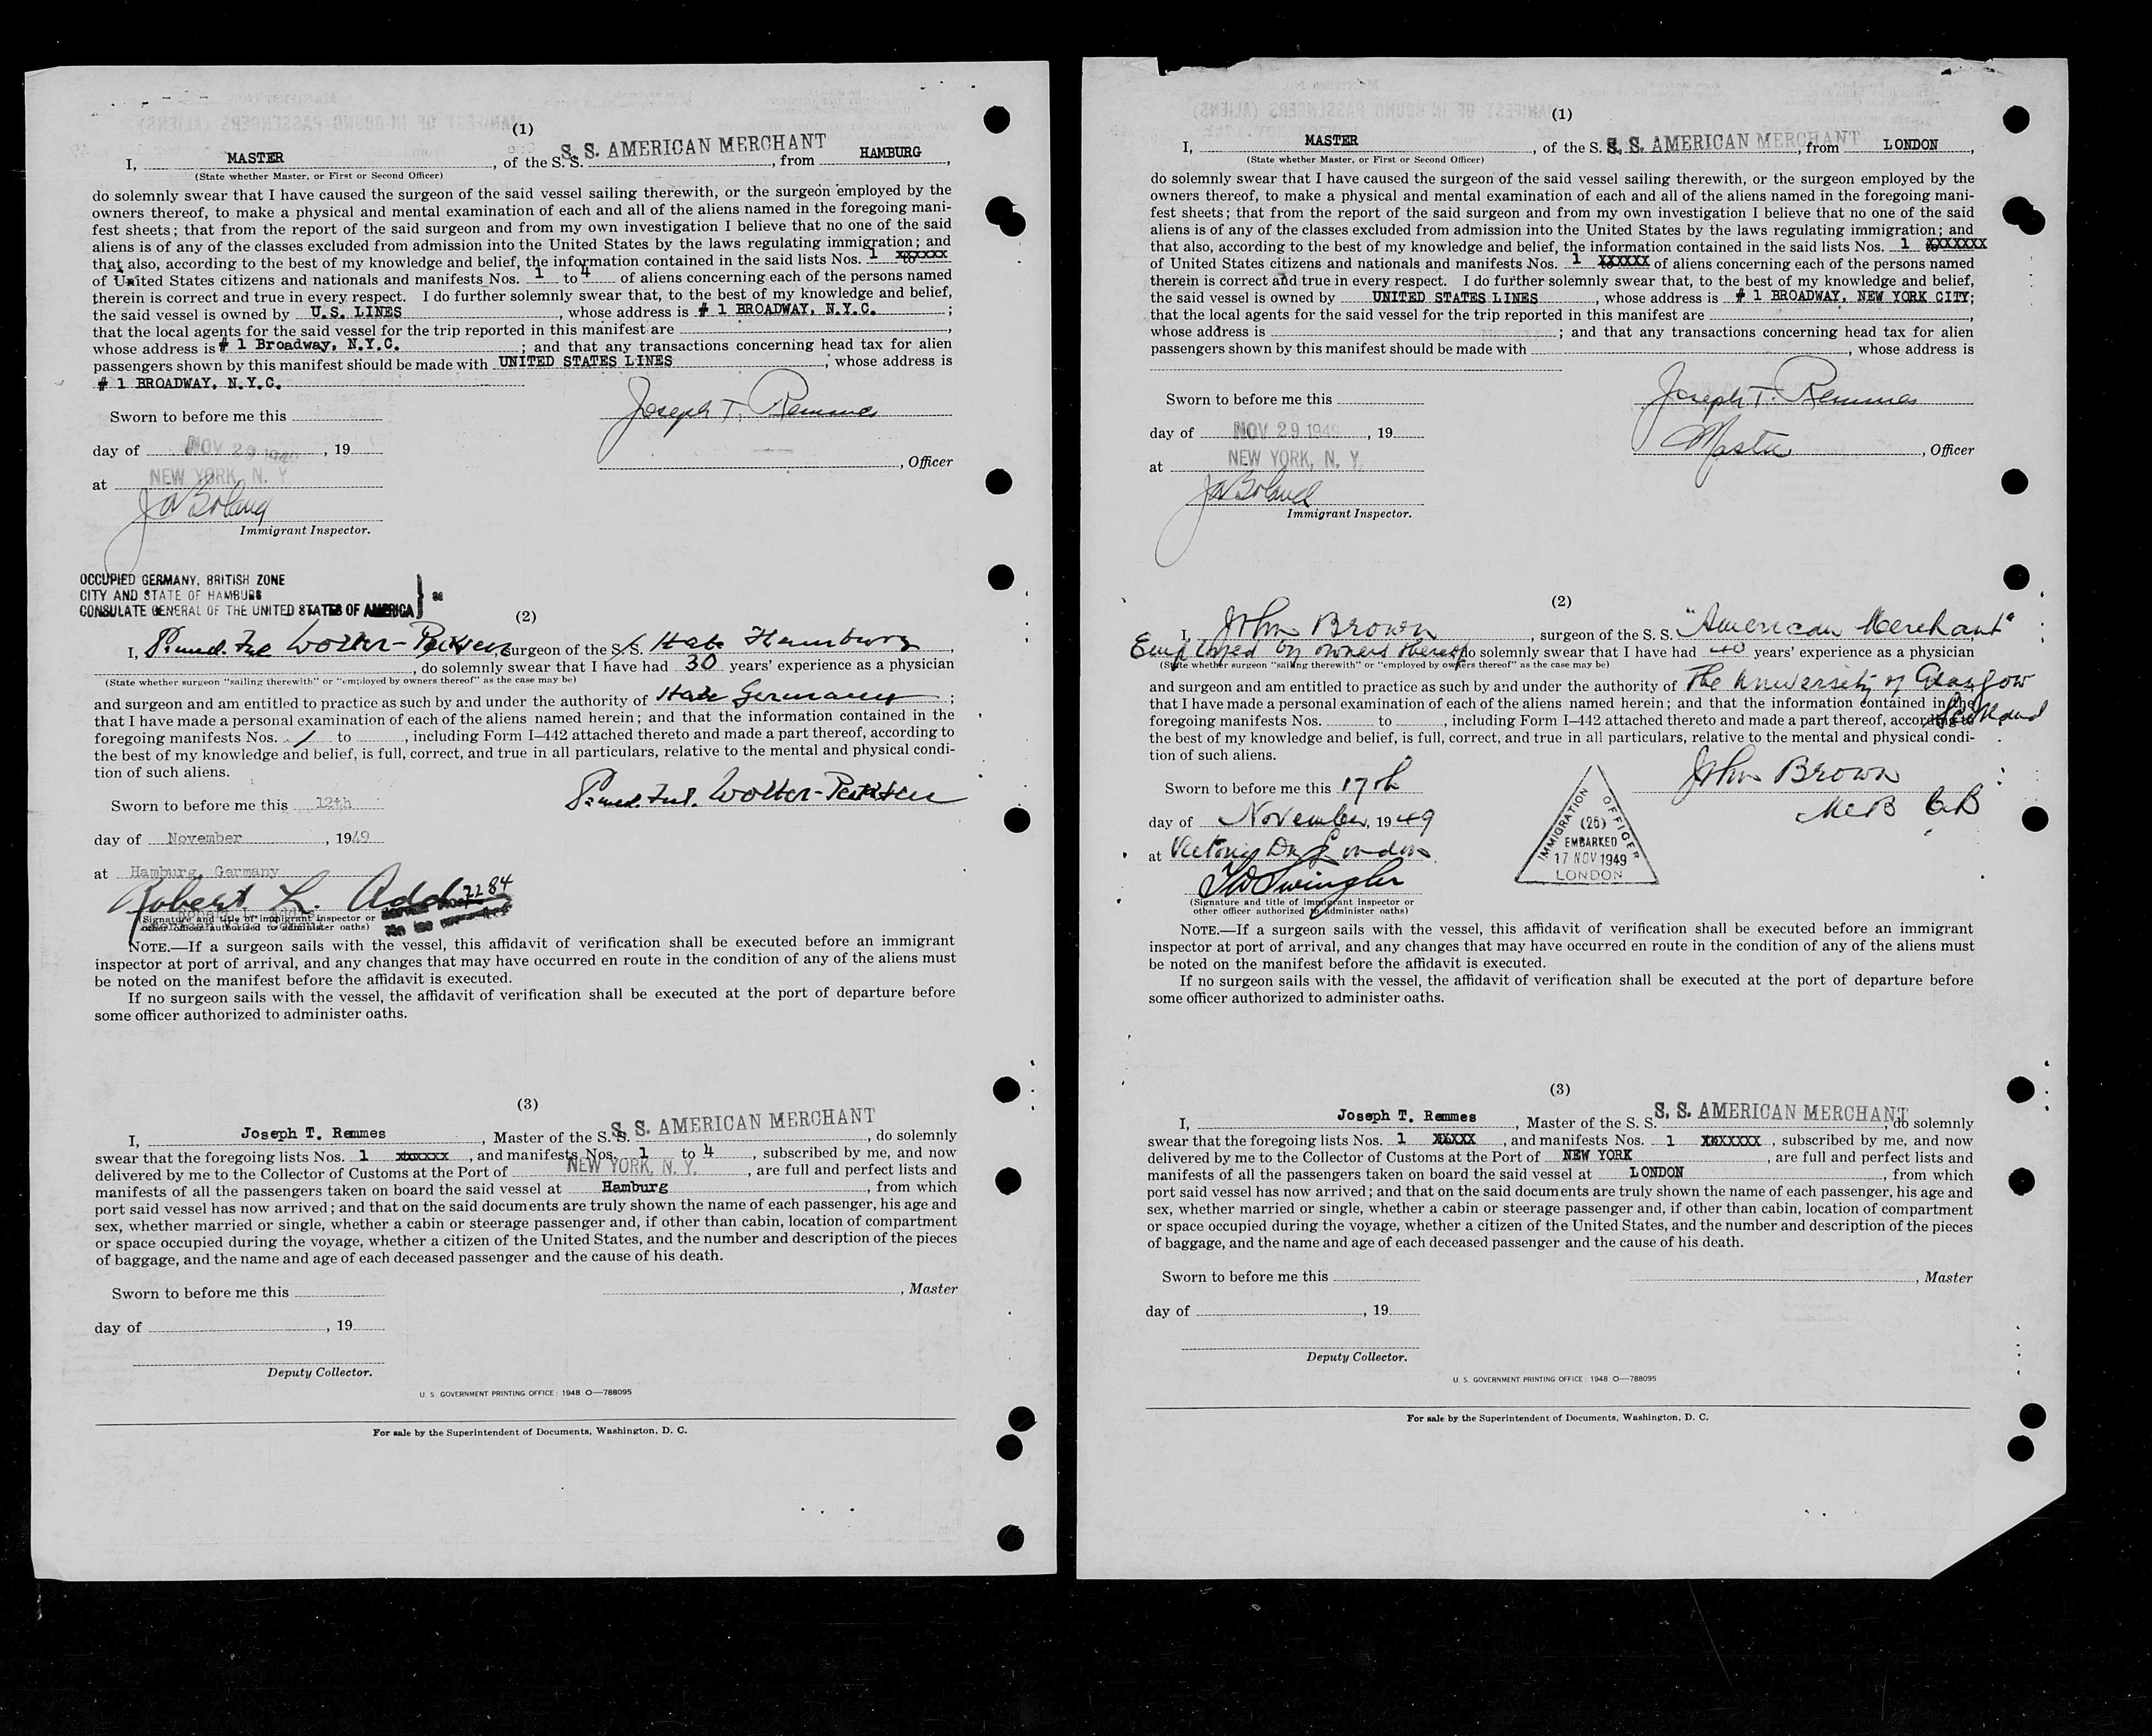 (1)
I, MASTER, of the S. S. S. S. AMERICAN MERCHANT, from HAMBURG,
(State whether Master, or First or Second Officer)
do solemnly swear that I have caused the surgeon of the said vessel sailing therewith, or the surgeon employed by the
owners thereof, to make a physical and mental examination of each and all of the aliens named in the foregoing mani-
fest sheets; that from the report of the said surgeon and from my own investigation I believe that no one of the said
aliens is of any of the classes excluded from admission into the United States by the laws regulating immigration; and
that also, according to the best of my knowledge and belief, the information contained in the said lists Nos. 1 xxxxxx
of United States citizens and nationals and manifests Nos. 1 to 4 of aliens concerning each of the persons named
therein is correct and true in every respect. I do further solemnly swear that, to the best of my knowledge and belief,
the said vessel is owned by U.S. LINES, whose address is # 1 BROADWAY, N.Y.C.;
that the local agents for the said vessel for the trip reported in this manifest are
whose address is # 1 Broadway, N.Y.C.; and that any transactions concerning head tax for alien
passengers shown by this manifest should be made with UNITED STATES LINES, whose address is
# 1 BROADWAY, N.Y.C.
Sworn to before me this
Joseph T. Remmes
day of NOV 29 1949, 19
, Officer
at NEW YORK, N. Y.
Immigrant Inspector.
OCCUPIED GERMANY, BRITISH ZONE
CITY AND STATE OF HAMBURG
CONSULATE GENERAL OF THE UNITED STATES OF AMERICA
(2)
I, surgeon of the S. S. Hamburg,
, do solemnly swear that I have had 30 years' experience as a physician
(State whether surgeon "sailing therewith" or "employed by owners thereof" as the case may be)
and surgeon and am entitled to practice as such by and under the authority of Germany;
that I have made a personal examination of each of the aliens named herein; and that the information contained in the
foregoing manifests Nos. 1 to , including Form I–442 attached thereto and made a part thereof, according to
the best of my knowledge and belief, is full, correct, and true in all particulars, relative to the mental and physical condi-
tion of such aliens.
Sworn to before me this 12th
day of November, 1949
at Hamburg, Germany
Robert L.
(Signature and title of immigrant inspector or
other officer authorized to administer oaths)
NOTE.—If a surgeon sails with the vessel, this affidavit of verification shall be executed before an immigrant
inspector at port of arrival, and any changes that may have occurred en route in the condition of any of the aliens must
be noted on the manifest before the affidavit is executed.
If no surgeon sails with the vessel, the affidavit of verification shall be executed at the port of departure before
some officer authorized to administer oaths.
(3)
I, Joseph T. Remmes, Master of the S. S. S. S. AMERICAN MERCHANT, do solemnly
swear that the foregoing lists Nos. 1 xxxxxxx, and manifests Nos. 1 to 4, subscribed by me, and now
delivered by me to the Collector of Customs at the Port of NEW YORK, N. Y., are full and perfect lists and
manifests of all the passengers taken on board the said vessel at Hamburg, from which
port said vessel has now arrived; and that on the said documents are truly shown the name of each passenger, his age and
sex, whether married or single, whether a cabin or steerage passenger and, if other than cabin, location of compartment
or space occupied during the voyage, whether a citizen of the United States, and the number and description of the pieces
of baggage, and the name and age of each deceased passenger and the cause of his death.
Sworn to before me this
, Master
day of , 19
Deputy Collector.
U. S. GOVERNMENT PRINTING OFFICE: 1948 O—788095
For sale by the Superintendent of Documents, Washington, D. C.
(1)
I, MASTER, of the S. S. S. AMERICAN MERCHANT, from LONDON,
(State whether Master, or First or Second Officer)
do solemnly swear that I have caused the surgeon of the said vessel sailing therewith, or the surgeon employed by the
owners thereof, to make a physical and mental examination of each and all of the aliens named in the foregoing mani-
fest sheets; that from the report of the said surgeon and from my own investigation I believe that no one of the said
aliens is of any of the classes excluded from admission into the United States by the laws regulating immigration; and
that also, according to the best of my knowledge and belief, the information contained in the said lists Nos. 1 xxxxxxx
of United States citizens and nationals and manifests Nos. 1 xxxxxx of aliens concerning each of the persons named
therein is correct and true in every respect. I do further solemnly swear that, to the best of my knowledge and belief,
the said vessel is owned by UNITED STATES LINES, whose address is # 1 BROADWAY, NEW YORK CITY;
that the local agents for the said vessel for the trip reported in this manifest are ,
whose address is ; and that any transactions concerning head tax for alien
passengers shown by this manifest should be made with , whose address is
Sworn to before me this
Joseph T. Remmes
day of NOV 29 1949, 19
Master, Officer
at NEW YORK, N. Y.
Immigrant Inspector.
(2)
I, John Brown, surgeon of the S. S. "American Merchant"
Employed by owners thereof do solemnly swear that I have had 40 years' experience as a physician
(State whether surgeon "sailing therewith" or "employed by owners thereof" as the case may be)
and surgeon and am entitled to practice as such by and under the authority of The University of Glasgow
Scotland
that I have made a personal examination of each of the aliens named herein; and that the information contained in the
foregoing manifests Nos. to , including Form I–442 attached thereto and made a part thereof, according to
the best of my knowledge and belief, is full, correct, and true in all particulars, relative to the mental and physical condi-
tion of such aliens.
Sworn to before me this 17th
John Brown
day of November, 1949
at London
IMMIGRATION OFFICER
(26)
EMBARKED
17 NOV 1949
LONDON
(Signature and title of immigrant inspector or
other officer authorized to administer oaths)
NOTE.—If a surgeon sails with the vessel, this affidavit of verification shall be executed before an immigrant
inspector at port of arrival, and any changes that may have occurred en route in the condition of any of the aliens must
be noted on the manifest before the affidavit is executed.
If no surgeon sails with the vessel, the affidavit of verification shall be executed at the port of departure before
some officer authorized to administer oaths.
(3)
I, Joseph T. Remmes, Master of the S. S. S. S. AMERICAN MERCHANT, do solemnly
swear that the foregoing lists Nos. 1 xxxxx, and manifests Nos. 1 xxxxxxx, subscribed by me, and now
delivered by me to the Collector of Customs at the Port of NEW YORK, are full and perfect lists and
manifests of all the passengers taken on board the said vessel at LONDON, from which
port said vessel has now arrived; and that on the said documents are truly shown the name of each passenger, his age and
sex, whether married or single, whether a cabin or steerage passenger and, if other than cabin, location of compartment
or space occupied during the voyage, whether a citizen of the United States, and the number and description of the pieces
of baggage, and the name and age of each deceased passenger and the cause of his death.
Sworn to before me this
, Master
day of , 19
Deputy Collector.
U. S. GOVERNMENT PRINTING OFFICE: 1948 O—788095
For sale by the Superintendent of Documents, Washington, D. C.